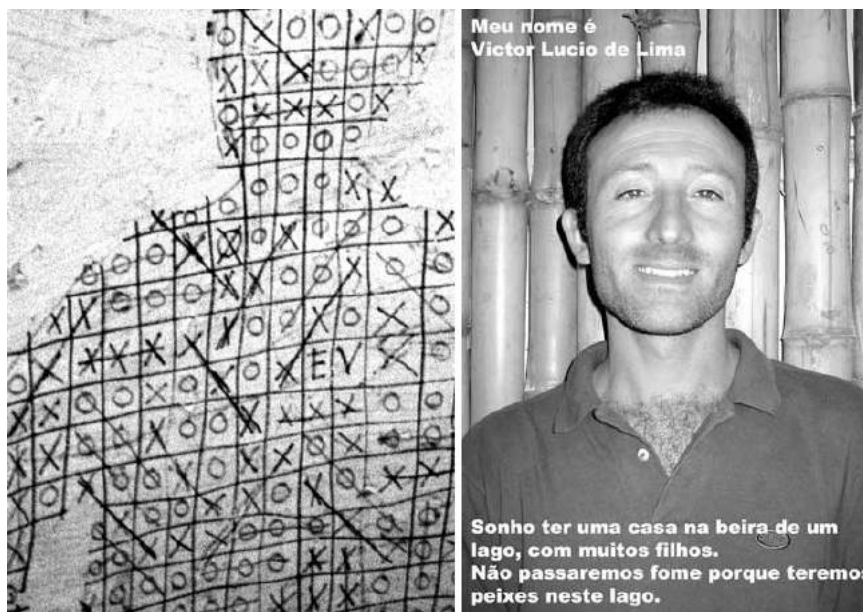 EV
Meu nome é
Victor Lucio de Lima
Sonho ter uma casa na beira de um
lago, com muitos filhos.
Não passaremos fome porque teremos
peixes neste lago.